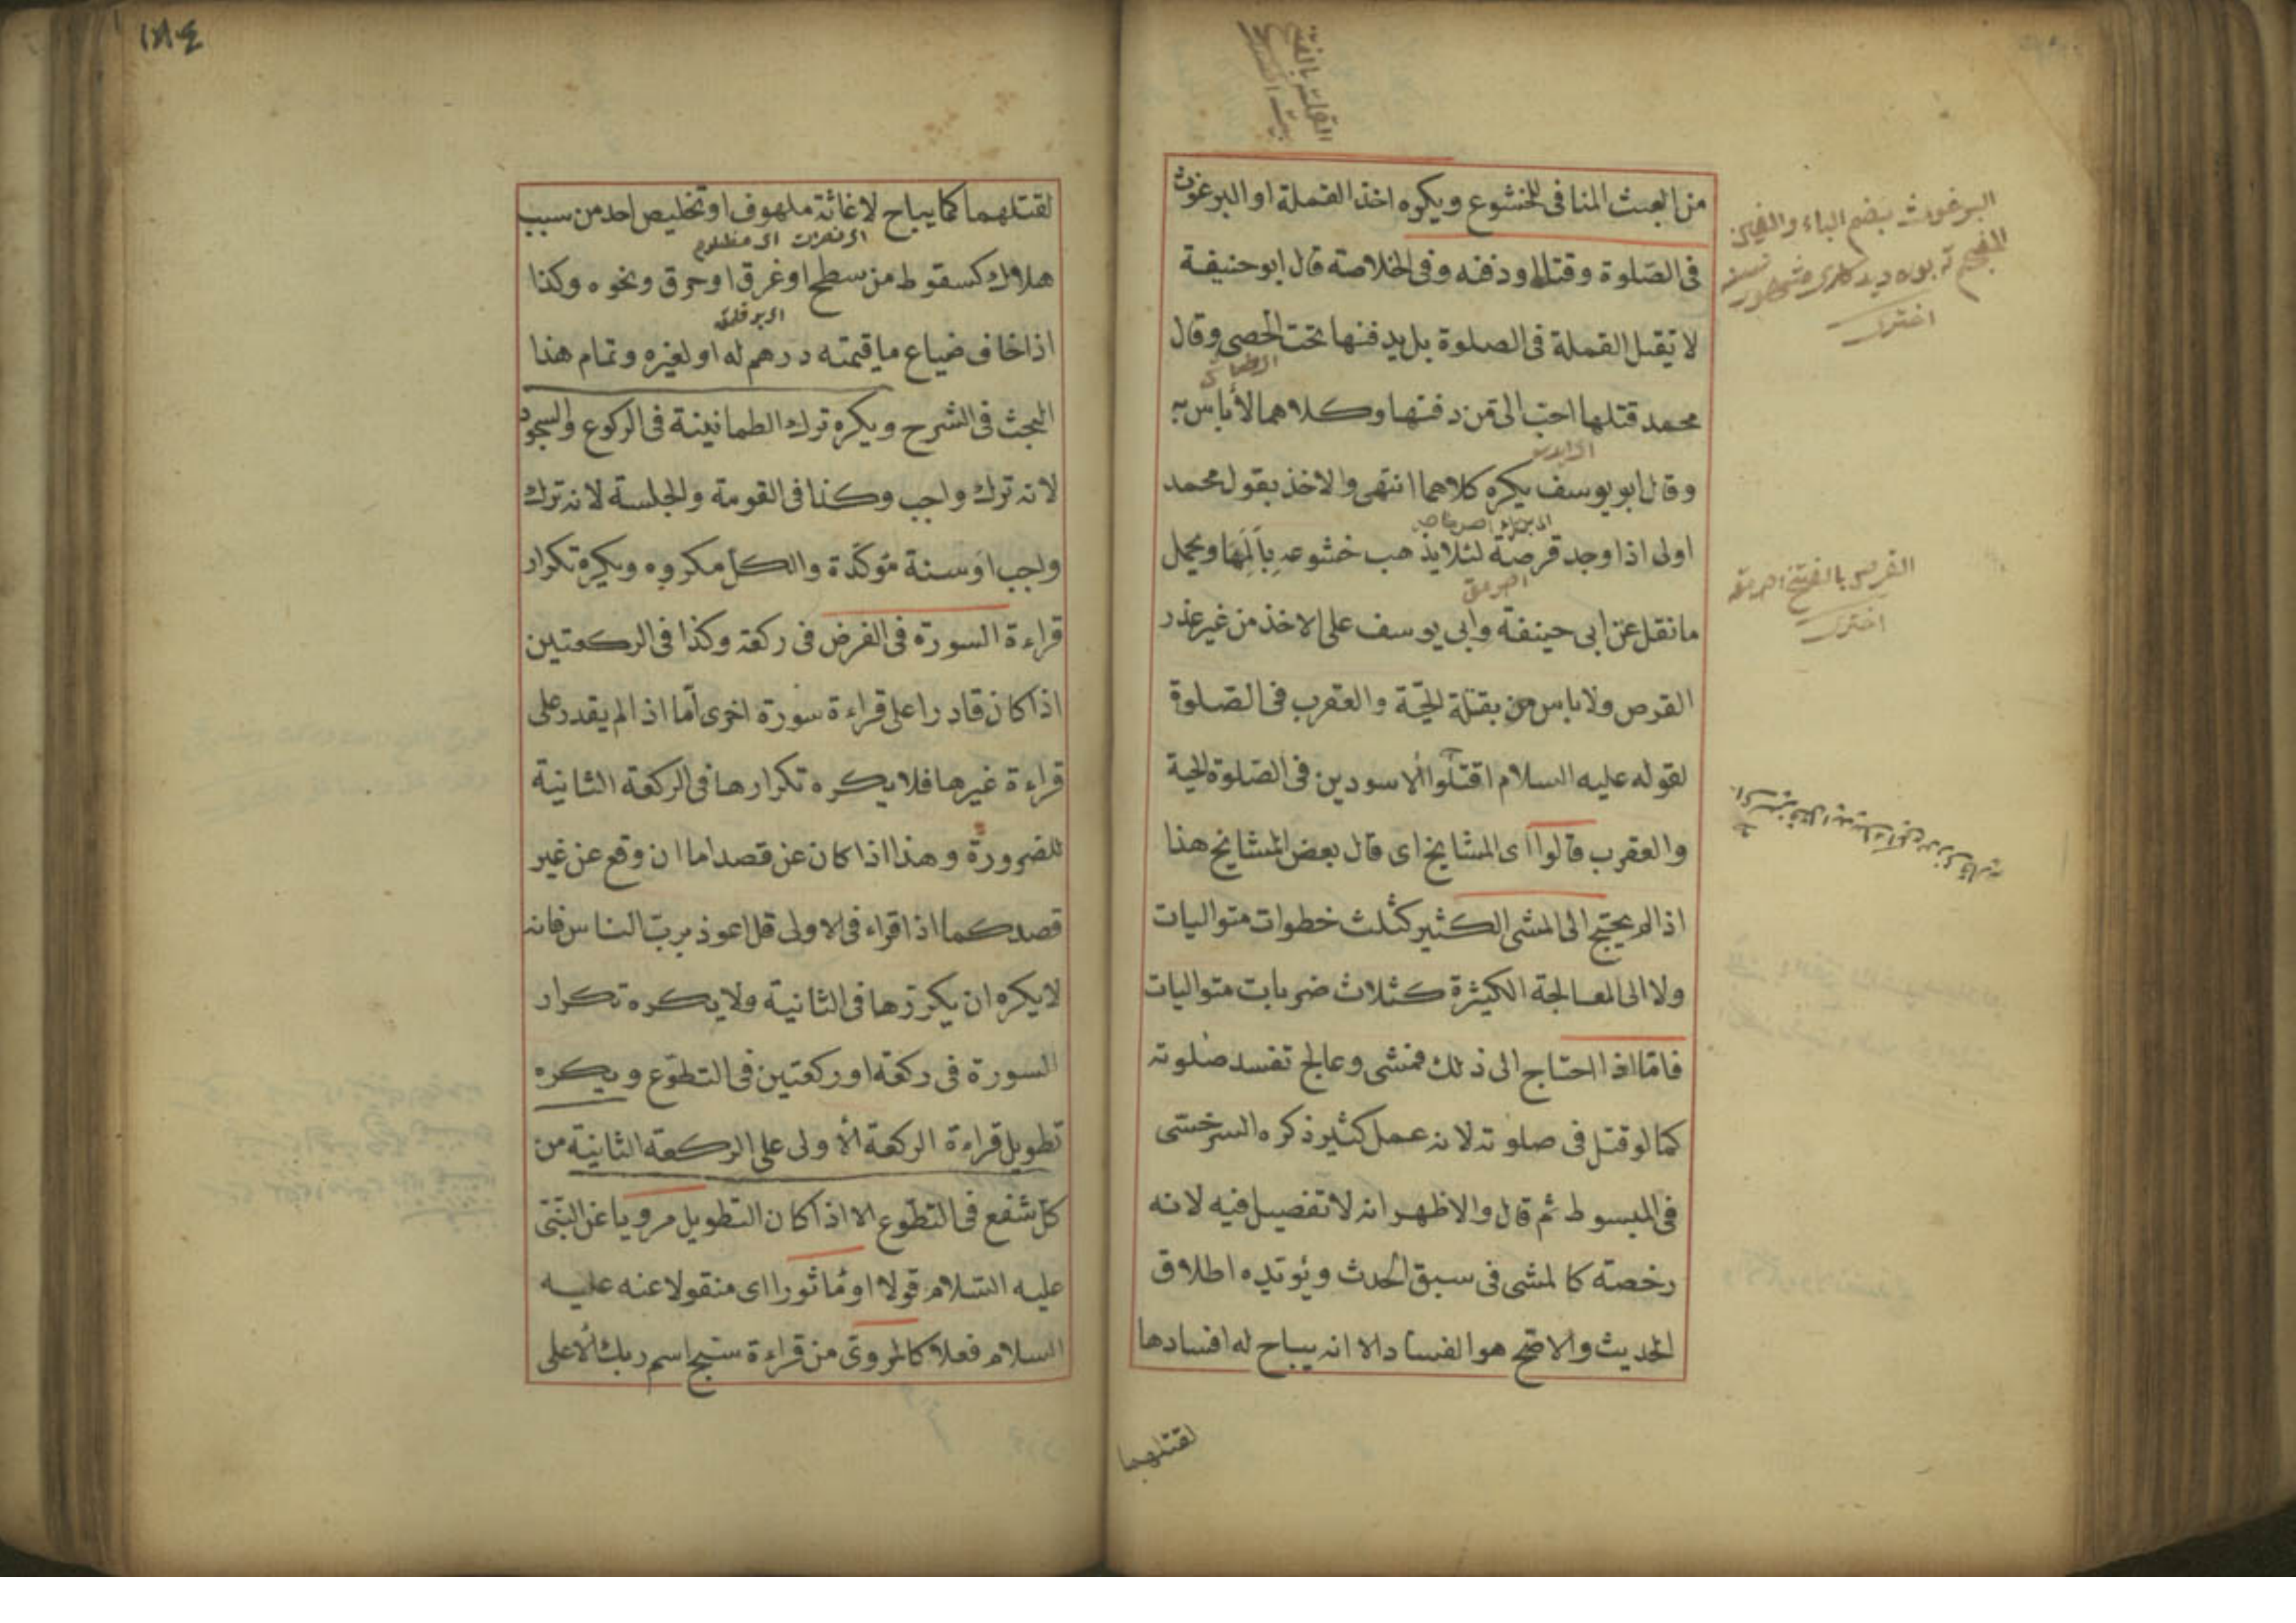 من العبث المنافى للخشوع ويكره اخذ القملة او البرغوث
فى الصلوة وقتله ودفنه وفى الخلاصة قال ابو حنيفة
لا تقتل القملة فى الصلوة بل يدفنها تحت الحصى وقال
محمد قتلها احب الى من دفنها وكلاهما لأباس به
وقال ابو يوسف يكره كلاهما انتهى والاخذ بقول محمد
اولى اذا وجد قرصة لئلا يذهب خشوعه بألمها ويحمل
ما نقل عن ابى حنيفة وابى يوسف على الاخذ من غير عذر
القرص ولا باس بقتلة الحية والعقرب فى الصلوة
لقوله عليه السلام اقتلوا الاسودين فى الصلوة الحية
والعقرب قالوا اى المشايخ اى قال بعض المشايخ هذا
اذا لم يحتج الى المشى الكثير كثلث خطوات متواليات
ولا الى المعالجة الكثيرة كثلاث ضربات متواليات
فامّا اذا احتاج الى ذلك فمشى وعالج تفسد صلوته
كما لو قتل فى صلوته لانه عمل كثير ذكره السرخسى
فى المبسوط ثم قال والاظهر انه لا تفصيل فيه لانه
رخصة كالمشى فى سبق الحدث ويؤيده اطلاق
الحديث والاصح هو الفساد الا انه يباح له افسادها
لقتلهما
البرغوث بضم الباء والغين
اخترى
القرص بالفتح
اخترى
١٨٤
لقتلهما كما يباح لاغاثة ملهوف او تخليص احد من سبب
هلاك كسقوط من سطح او غرق او حرق ونحوه وكذا
اذا خاف ضياع ما قيمته درهم له او لغيره وتمام هذا
البحث فى الشرح ويكره ترك الطمانينة فى الركوع والسجود
لانه ترك واجب وكذا فى القومة والجلسة لانه ترك
واجب او سنة مؤكدة والكل مكروه ويكره تكرار
قراءة السورة فى الفرض فى ركعة وكذا فى الركعتين
اذا كان قادرا على قراءة سورة اخرى أمّا اذا لم يقدر على
قراءة غيرها فلا يكره تكرارها فى الركعة الثانية
للضرورة وهذا اذا كان عن قصد اما ان وقع عن غير
قصد كما اذا قراء فى الاولى قل اعوذ برب الناس فانه
لا يكره ان يكررها فى الثانية ولا يكره تكرار
السورة فى ركعة او ركعتين فى التطوع ويكره
تطويل قراءة الركعة الأولى على الركعة الثانية من
كل شفع فى التطوع الا اذا كان التطويل مرويا عن النبى
عليه السلام قولا او مأثورا اى منقولا عنه عليه
السلام فعلا كالمروى من قراءة سبح اسم ربك الأعلى